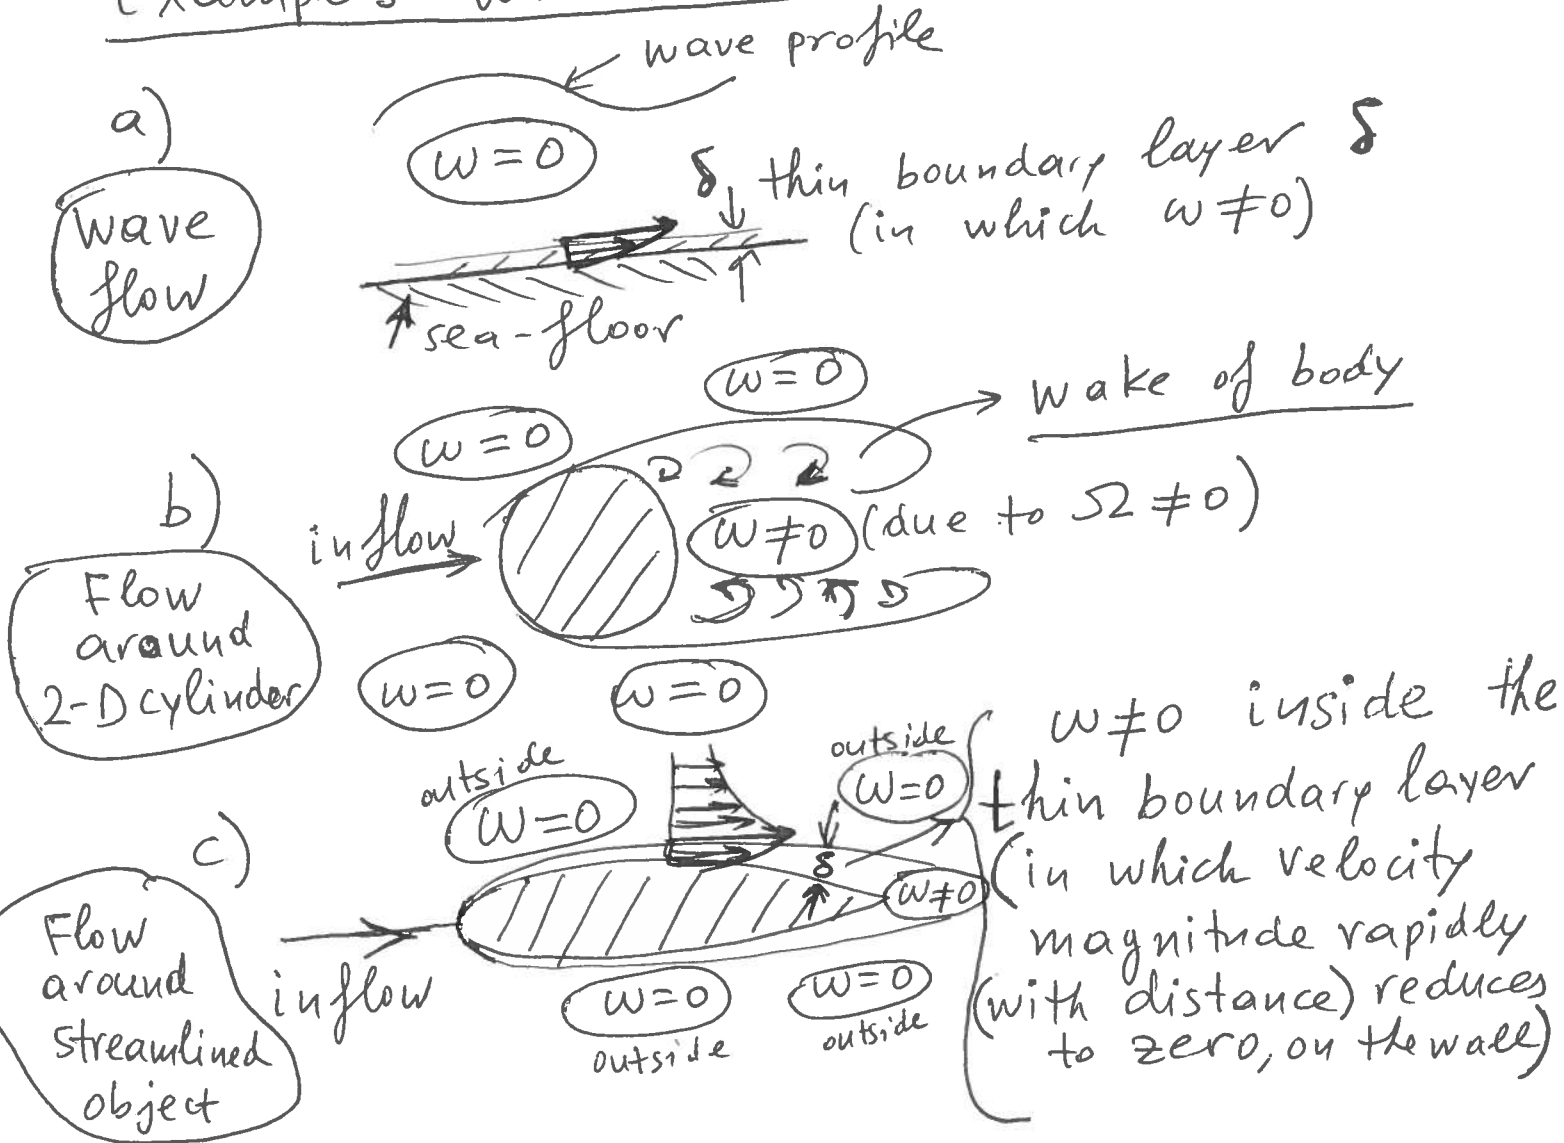 wave profile
a)
ω = 0
wave
flow
δ thin boundary layer δ
(in which ω ≠ 0)
sea-floor
ω = 0
wake of body
ω = 0
b)
inflow
ω ≠ 0 (due to Ω ≠ 0)
Flow
around
2-D cylinder
ω = 0
ω = 0
outside
ω = 0
outside
ω = 0
c)
δ
ω ≠ 0
ω ≠ 0 inside the
thin boundary layer
(in which velocity
magnitude rapidly
(with distance) reduces
to zero, on the wall)
Flow
around
streamlined
object
inflow
ω = 0
outside
ω = 0
outside